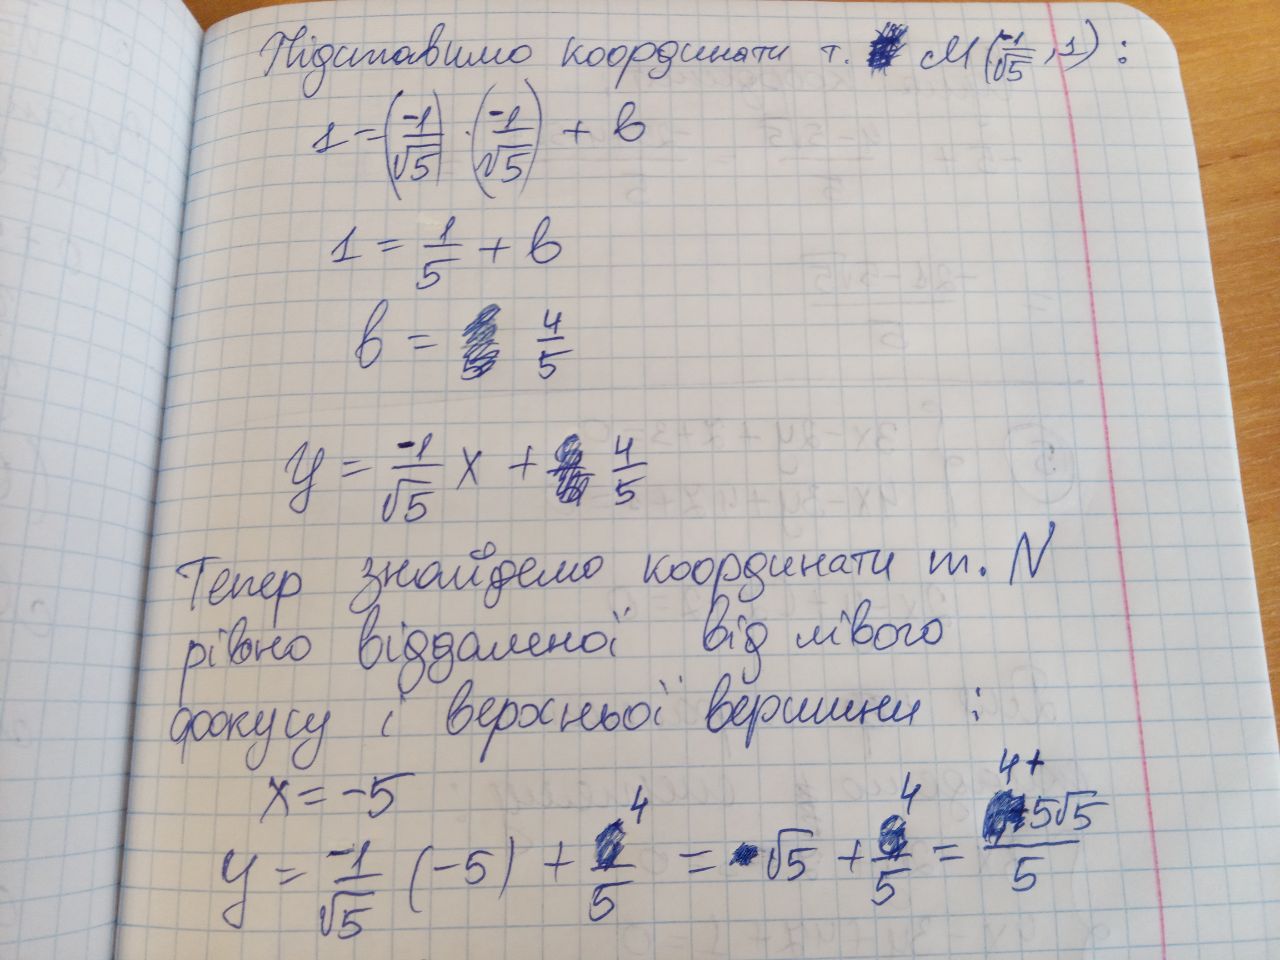 Підставимо координати т. M (-1/√5, 1) :
1 = (-1/√5) · (-1/√5) + b
1 = 1/5 + b
b = 4/5
y = -1/√5 x + 4/5
Тепер знайдемо координати т. N
рівно віддаленої від лівого
фокусу і верхньої вершини :
x = -5
y = -1/√5 (-5) + 4/5 = √5 + 4/5 = 4+5√5/5